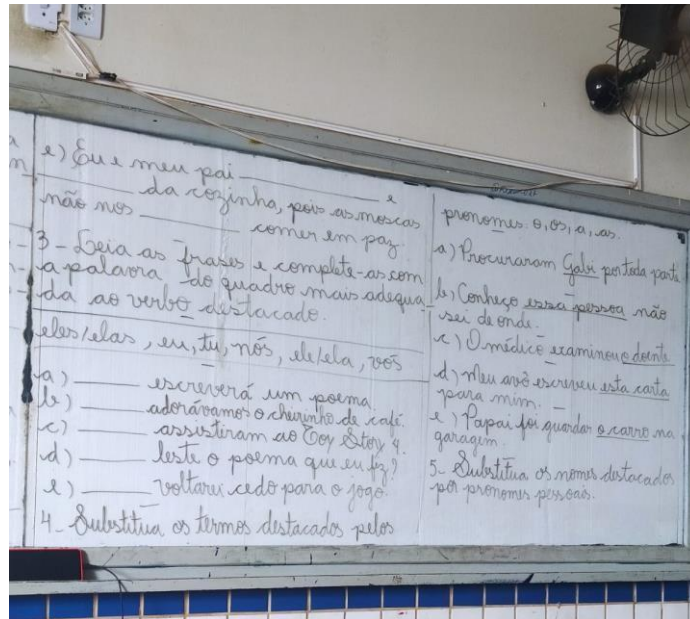 e) Eu e meu pai ________ e
________ da cozinha, pois as moscas
não nos ________ comer em paz.
3 - Leia as frases e complete-as com
a palavra do quadro mais adequa-
da ao verbo destacado.
eles/elas, eu, tu, nós, ele/ela, vós
a) ______ escreverá um poema.
b) ______ adorávamos o cheirinho de café.
c) ______ assistiram ao Toy Story 4.
d) ______ leste o poema que eu fiz?
e) ______ voltarei cedo para o jogo.
4 - Substitua os termos destacados pelos
pronomes: o, os, a, as.
a) Procuraram Gabi por toda parte
b) Conheço essa pessoa não
sei de onde.
c) O médico examinou o doente
d) Meu avô escreveu esta carta
para mim.
e) Papai foi guardar o carro na
garagem.
5 - Substitua os nomes destacados
por pronomes pessoais.